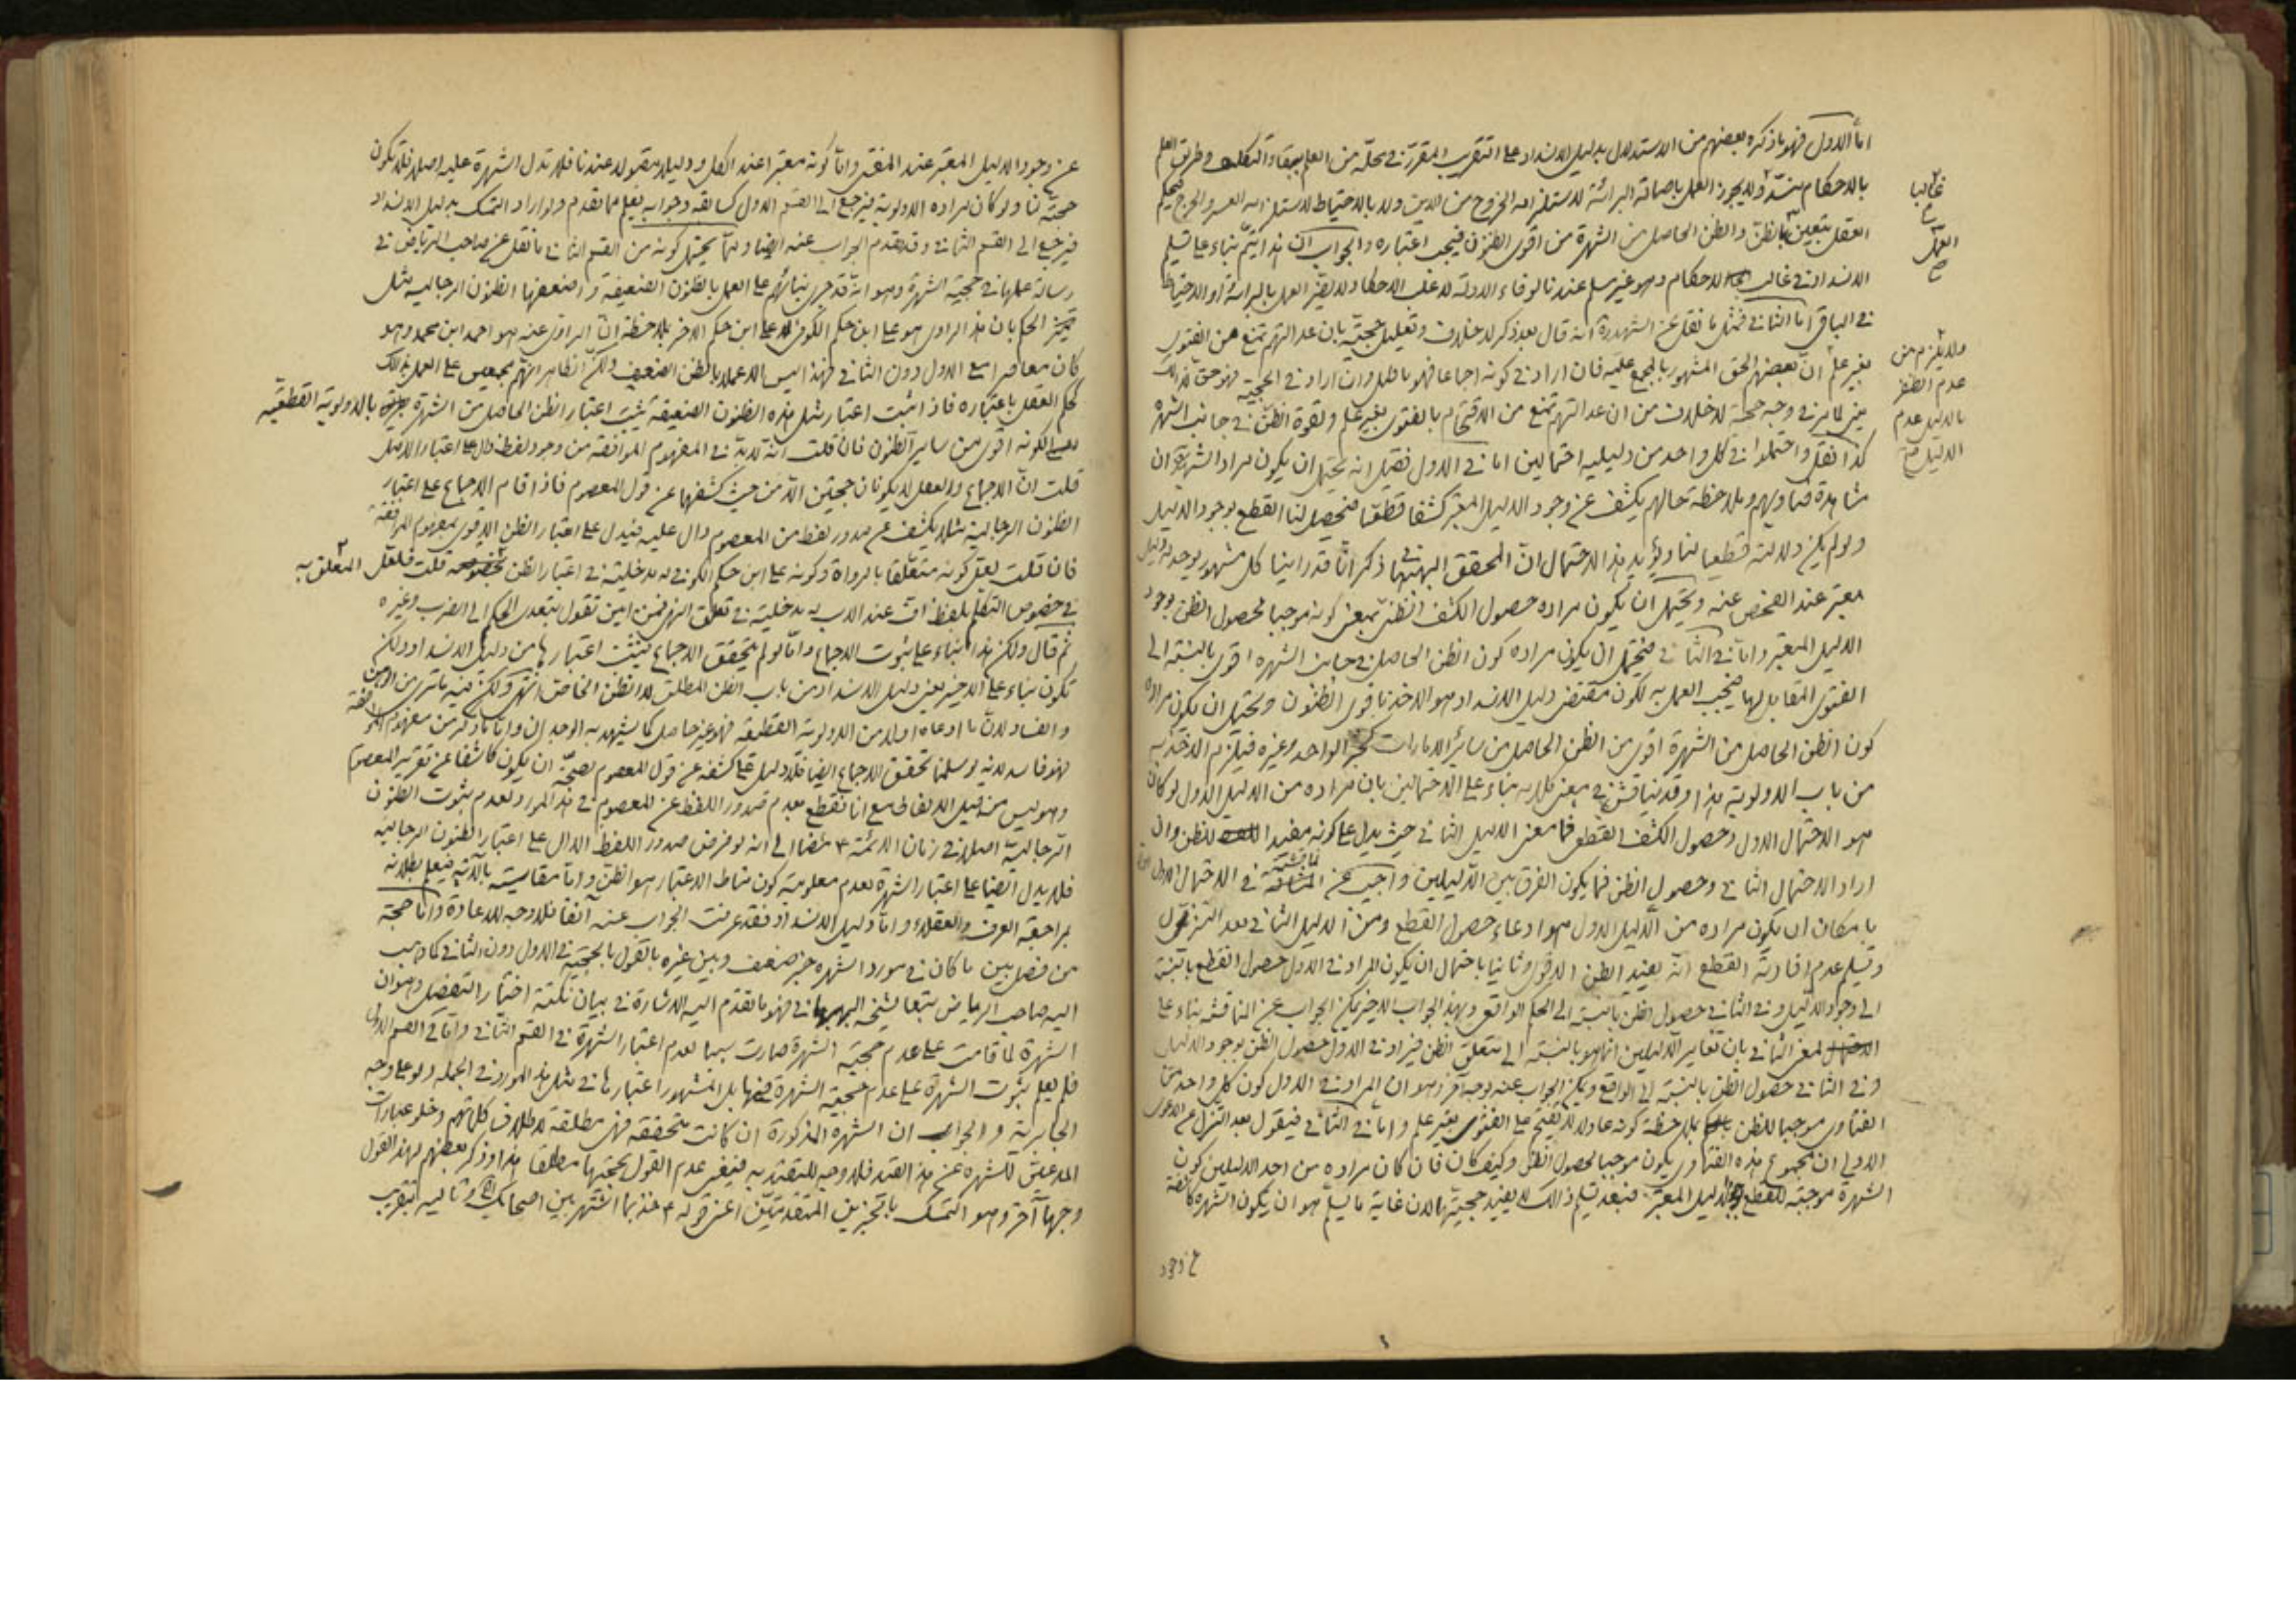 اما الاول فهو ما ذكره بعضهم من الاستدلال بدليل الانسداد على التقريب المقرر في محله من العلم ببقاء التكليف وطريق العلم
بالاحكام منسد ولا يجوز العمل باصالة البرائة لاستلزامه الخروج من الدين ولا بالاحتياط لاستلزامه العسر والحرج فبحكم
العقل يتعين بالظن والظن الحاصل من الشهرة من اقوى الظنون فيجب اعتباره والجواب ان هذا يتم بناء على تسليم
الانسداد في غالب الاحكام وهو غير مسلم عندنا لوفاء الادلة لاغلب الاحكام ولا يضر العمل بالبرائة او الاحتياط
في الباقي اما الثاني فمثل ما نقل عن الشهيد ره انه قال بعد ذكر الخلاف وتعليل حجيته بان عدالتهم تمنع من الفتوى
بغير علم ان بعضهم الحق المشهور بالمجمع عليه فان اراد في كونه اجماعا فهو باطل وان اراد في الحجية فهو حق لذلك
يعني لما مر في وجه حجية الخلاف من ان عدالتهم تمنع من الاقتحام بالفتوى بغير علم ولقوة الظن في جانب الشهرة
كذا نقل واحتملوا في كل واحد من دليليه احتمالين اما في الاول فقيل انه يحتمل ان يكون مراد الشهيد ان
مشاهدة فتاويهم وملاحظة حالهم يكشف عن وجود الدليل المعتبر كشفا قطعيا فيحصل لنا القطع بوجود الدليل
ولو لم يكن دلالته قطعيا لنا ويؤيد هذا الاحتمال ان المحقق البهبهاني ذكر انا قد راينا كل مشهور يوجد له دليل
معتبر عند الفحص عنه ويحتمل ان يكون مراده حصول الكشف الظني بمعنى كونه موجبا لحصول الظن بوجود
الدليل المعتبر واما في الثاني فيحتمل ان يكون مراده كون الظن الحاصل في جانب الشهرة اقوى بالنسبة الى
الفتوى المقابل لها فيجب العمل به لكون مقتضى دليل الانسداد هو الاخذ باقوى الظنون ويحتمل ان يكون مراده
كون الظن الحاصل من الشهرة اقوى من الظن الحاصل من سائر الامارات كخبر الواحد وغيره فيلزم الاخذ به
من باب الاولوية هذا وقد يناقش في معنى كلامه بناء على الاحتمالين بان مراده من الدليل الاول لو كان
هو الاحتمال الاول وحصول الكشف القطعي فما معنى الدليل الثاني حيث يدل على كونه مفيدا للظن وان
اراد الاحتمال الثاني وحصول الظن فما يكون الفرق بين الدليلين واجيب عن المناقشة في الاحتمال الاول
بامكان ان يكون مراده من الدليل الاول هو ادعاء حصول القطع ومن الدليل الثاني بعد التنزل
وتسليم عدم افادته القطع انه يفيد الظن الاقوى وثانيا باحتمال ان يكون المراد في الاول حصول القطع بالنسبة
الى وجود الدليل وفي الثاني حصول الظن بالنسبة الى الحكم الواقعي وبهذا الجواب الاخير يمكن الجواب عن المناقشة بناء على
المعنى الثاني بان تغاير الدليلين انما هو بالنسبة الى متعلق الظن فيراد في الاول حصول الظن بوجود الدليل
وفي الثاني حصول الظن بالنسبة الى الواقع ويمكن الجواب عنه بوجه آخر وهو ان المراد في الاول كون كل واحد من
الفتاوى موجبا للظن بملاحظة كونه عادلا لا يقتحم على الفتوى بغير علم واما في الثاني فيقول بعد التنزل عن الدعوى
الاولى ان مجموع هذه الفتاوى يكون موجبا لحصول الظن وكيف كان فان كان مراده من احد الدليلين كون
الشهرة موجبة للقطع بوجود الدليل المعتبر فبعد تسليم ذلك لا يفيد حجيتها لان غاية ما يسلم هو ان يكون الشهرة كاشفة
عن وجود
غالبا
العمل
ولا يلزم من
عدم الظفر
بالدليل عدم
الدليل
عن وجود الدليل المعتبر عند المفتي واما كونه معتبرا عند الكل ودليلا مقبولا عندنا فلا تدل الشهرة عليه اصلا فلا تكون
حجة لنا ولو كان مراده الاولوية فيرجع الى القسم الاول كسابقه وجوابه يعلم مما تقدم ولو اراد التمسك بدليل الانسداد
فيرجع الى القسم الثاني وقد تقدم الجواب عنه ايضا ومما يحتمل كونه من القسم الثاني ما نقل عن صاحب الرياض في
رسالة عملها في حجية الشهرة وهو انه قد جرى بنائهم على العمل بالظنون الضعيفة واضعفها الظنون الرجالية مثل
تميز الحكم بان هذا الراوي هو علي ابن حكم الكوفي لا علي ابن حكم الاخر بملاحظة ان الراوي عنه هو احمد ابن محمد وهو
كان معاصرا مع الاول دون الثاني فهذا ليس الا عملا بالظن الضعيف ولكن الظاهر انهم مجمعين على العمل بذلك
حكم العقل باعتباره فاذا ثبت اعتبار مثل هذه الظنون الضعيفة يثبت اعتبار الظن الحاصل من الشهرة بالاولوية القطعية
لكونه اقوى من ساير الظنون فان قلت انه لابد في المفهوم الموافقة من وجود لفظ دال على اعتبار الاصل
قلت ان الاجماع والعقل لا يكونان حجتين الا من حيث كشفهما عن قول المعصوم فاذا قام الاجماع على اعتبار
الظنون الرجالية مثلا يكشف عن صدور لفظ من المعصوم دال عليه فيدل على اعتبار الظن الاقوى بمفهوم الموافقة
فان قلت لعل كونه متعلقا بالرواة وكونه علي ابن حكم الكوفي له مدخلية في اعتبار الظن قلت فلعل المتعلق به
في خصوص التكلم بلفظ اف عند الاب له مدخلية في تعلق النهي فمن اين تقول بتعدي الحكم الى الضرب وغيره
ثم قال ولكن هذا بناء على ثبوت الاجماع واما لو لم يتحقق الاجماع فيثبت اعتبارها من دليل الانسداد ولكن
تكون بناء على الاخير يعني دليل الانسداد من باب الظن المطلق لا الظن الخاص انتهى ولكن فيه ما ترى من الوهن
والفساد لان ما ادعاه اولا من الاولوية القطعية فهو غير حاصل كما يشهد به الوجدان واما ما ذكر من مفهوم الموافقة
فهو فاسد لانه لو سلمنا تحقق الاجماع ايضا فلا دليل على كشفه عن قول المعصوم لصحة ان يكون كاشفا عن تقرير المعصوم
وهو ليس من قبيل الالفاظ مع انا نقطع بعدم صدور اللفظ عن المعصوم في هذا المورد لعدم ثبوت الظنون
الرجالية اصلا في زمان الائمة ع مضافا الى انه لو فرض صدور اللفظ الدال على اعتبار الظنون الرجالية
فلا يدل ايضا على اعتبار الشهرة لعدم معلومية كون مناط الاعتبار هو الظن واما مقايسته بالآية فيعلم بطلانه
بمراجعة العرف والعقلاء واما دليل الانسداد فقد عرفت الجواب عنه آنفا فلا وجه للاعادة واما حجة
من فصل بين ما كان في مورد الشهرة خبر ضعيف وبين غيره بالقول بالحجية في الاول دون الثاني كما ذهب
اليه صاحب الرياض تبعا لشيخه البهبهاني فهو ما تقدم اليه الاشارة في بيان نكتة اختيار التفصيل وهو ان
الشهرة لما قامت على عدم حجية الشهرة صارت سببا لعدم اعتبار الشهرة في القسم الثاني واما في القسم الاول
فلم يعلم ثبوت الشهرة على عدم حجية الشهرة فيها بل المشهور اعتبارها في مثل هذا الموارد في الجملة ولو على وجه
الجابرية والجواب ان الشهرة المذكورة ان كانت متحققة فهي مطلقة لاطلاق كلماتهم وخلو عبارات
المدعين للشهرة عن هذا القيد فلا وجه للتقييد به فينبغي عدم القول بحجيتها مطلقا هذا وذكر بعضهم لهذا القول
وجها آخر وهو التمسك بالخبرين المتقدمين اعني قوله ع خذ بما اشتهر بين اصحابك وتاليه بتقريب